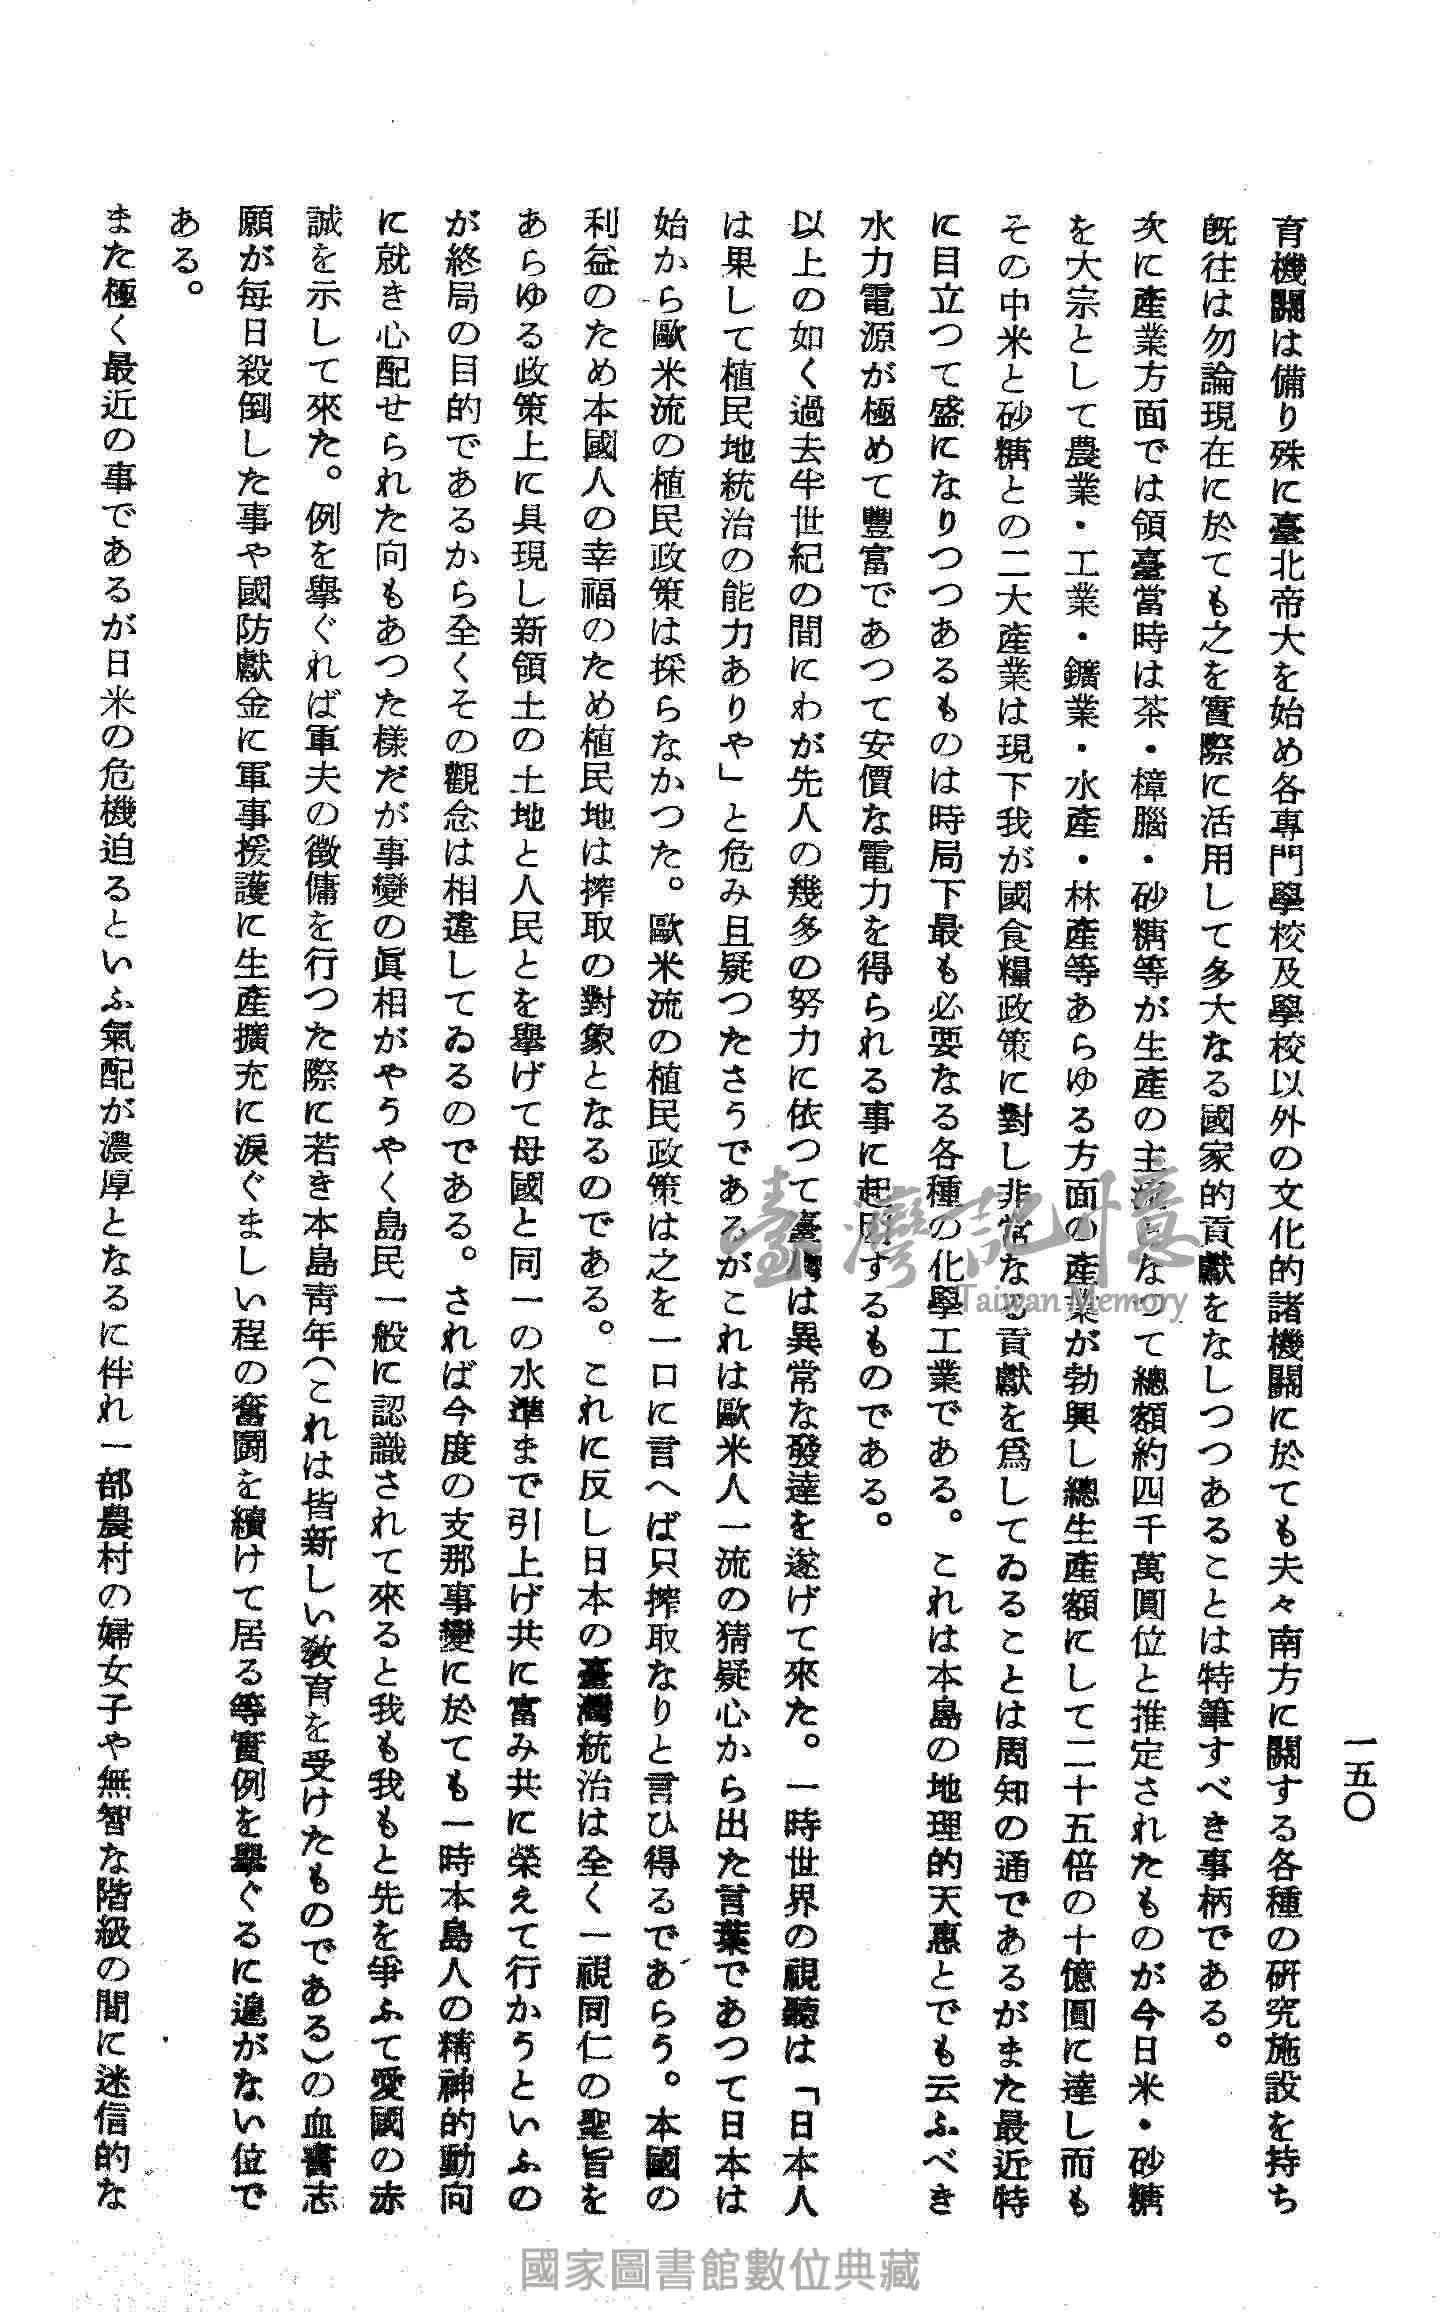 一五〇
育機關は備り殊に臺北帝大を始め各專門學校及學校以外の文化的諸機關に於ても夫々南方に關する各種の硏究施設を持ち
旣往は勿論現在に於ても之を實際に活用して多大なる國家的貢獻をなしつつあることは特筆すべき事柄である。
次に產業方面では領臺當時は茶・樟腦・砂糖等が生產の主流となつて總額約四千萬圓位と推定されたものが今日米・砂糖
を大宗として農業・工業・鑛業・水產・林產等あらゆる方面の產業が勃興し總生產額にして二十五倍の十億圓に達し而も
その中米と砂糖との二大產業は現下我が國食糧政策に對し非常なる貢獻を爲してゐることは周知の通であるがまた最近特
に目立つて盛になりつつあるものは時局下最も必要なる各種の化學工業である。これは本島の地理的天惠とでも云ふべき
水力電源が極めて豐富であつて安價な電力を得られる事に起因するものである。
以上の如く過去半世紀の間にわが先人の幾多の努力に依つて臺灣は異常な發達を遂げて來た。一時世界の視聽は「日本人
は果して植民地統治の能力ありや」と危み且疑つたさうであるがこれは歐米人一流の猜疑心から出た言葉であつて日本は
始から歐米流の植民政策は採らなかつた。歐米流の植民政策は之を一口に言へば只搾取なりと言ひ得るであらう。本國の
利益のため本國人の幸福のため植民地は搾取の對象となるのである。これに反し日本の臺灣統治は全く一視同仁の聖旨を
あらゆる政策上に具現し新領土の土地と人民とを擧げて母國と同一の水準まで引上げ共に富み共に榮えて行かうといふの
が終局の目的であるから全くその觀念は相違してゐるのである。されば今度の支那事變に於ても一時本島人の精神的動向
に就き心配せられた向もあつた樣だが事變の眞相がやうやく島民一般に認識されて來ると我も我もと先を爭ふて愛國の赤
誠を示して來た。例を擧ぐれば軍夫の徵傭を行つた際に若き本島靑年(これは皆新しい敎育を受けたものである)の血書志
願が每日殺倒した事や國防獻金に軍事援護に生產擴充に淚ぐましい程の奮鬪を續けて居る等實例を擧ぐるに遑がない位で
ある。
また極く最近の事であるが日米の危機迫るといふ氣配が濃厚となるに伴れ一部農村の婦女子や無智な階級の間に迷信的な
臺灣記憶
Taiwan Memory
國家圖書館數位典藏